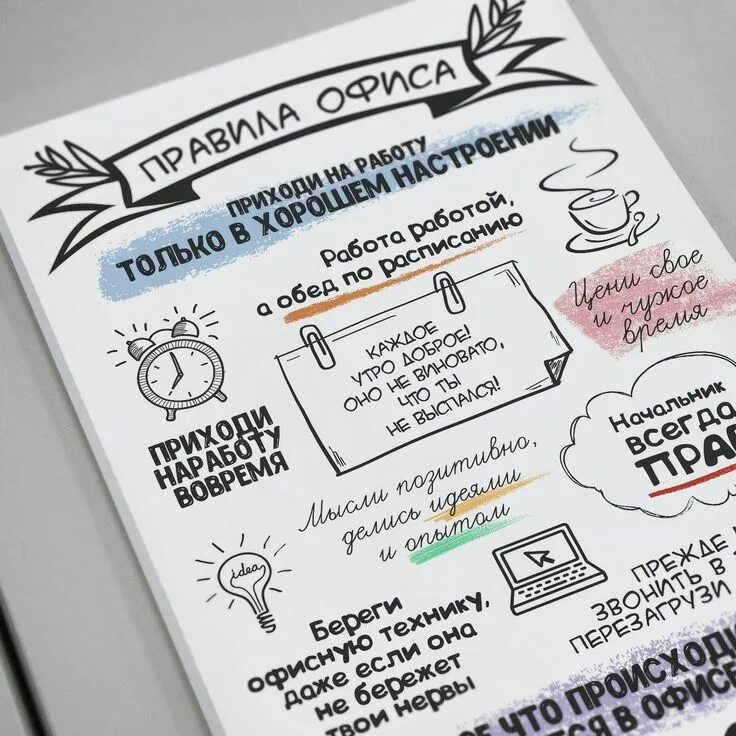 ПРАВИЛА ОФИСА
ПРИХОДИ НА РАБОТУ
ТОЛЬКО В ХОРОШЕМ НАСТРОЕНИИ
Работа работой,
а обед по расписанию
Цени свое
и чужое
время
КАЖДОЕ
УТРО ДОБРОЕ!
ОНО НЕ ВИНОВАТО,
ЧТО ТЫ
НЕ ВЫСПАЛСЯ!
ПРИХОДИ
НА РАБОТУ
ВОВРЕМЯ
Начальник
ВСЕГДА
ПРАВ
Мысли позитивно,
делись идеями
и опытом
idea
Береги
офисную технику,
даже если она
не бережет
твои нервы
ПРЕЖДЕ
ЗВОНИТЬ В
ПЕРЕЗАГРУЗИ
ЧТО ПРОИСХОДИ
В ОФИСЕ